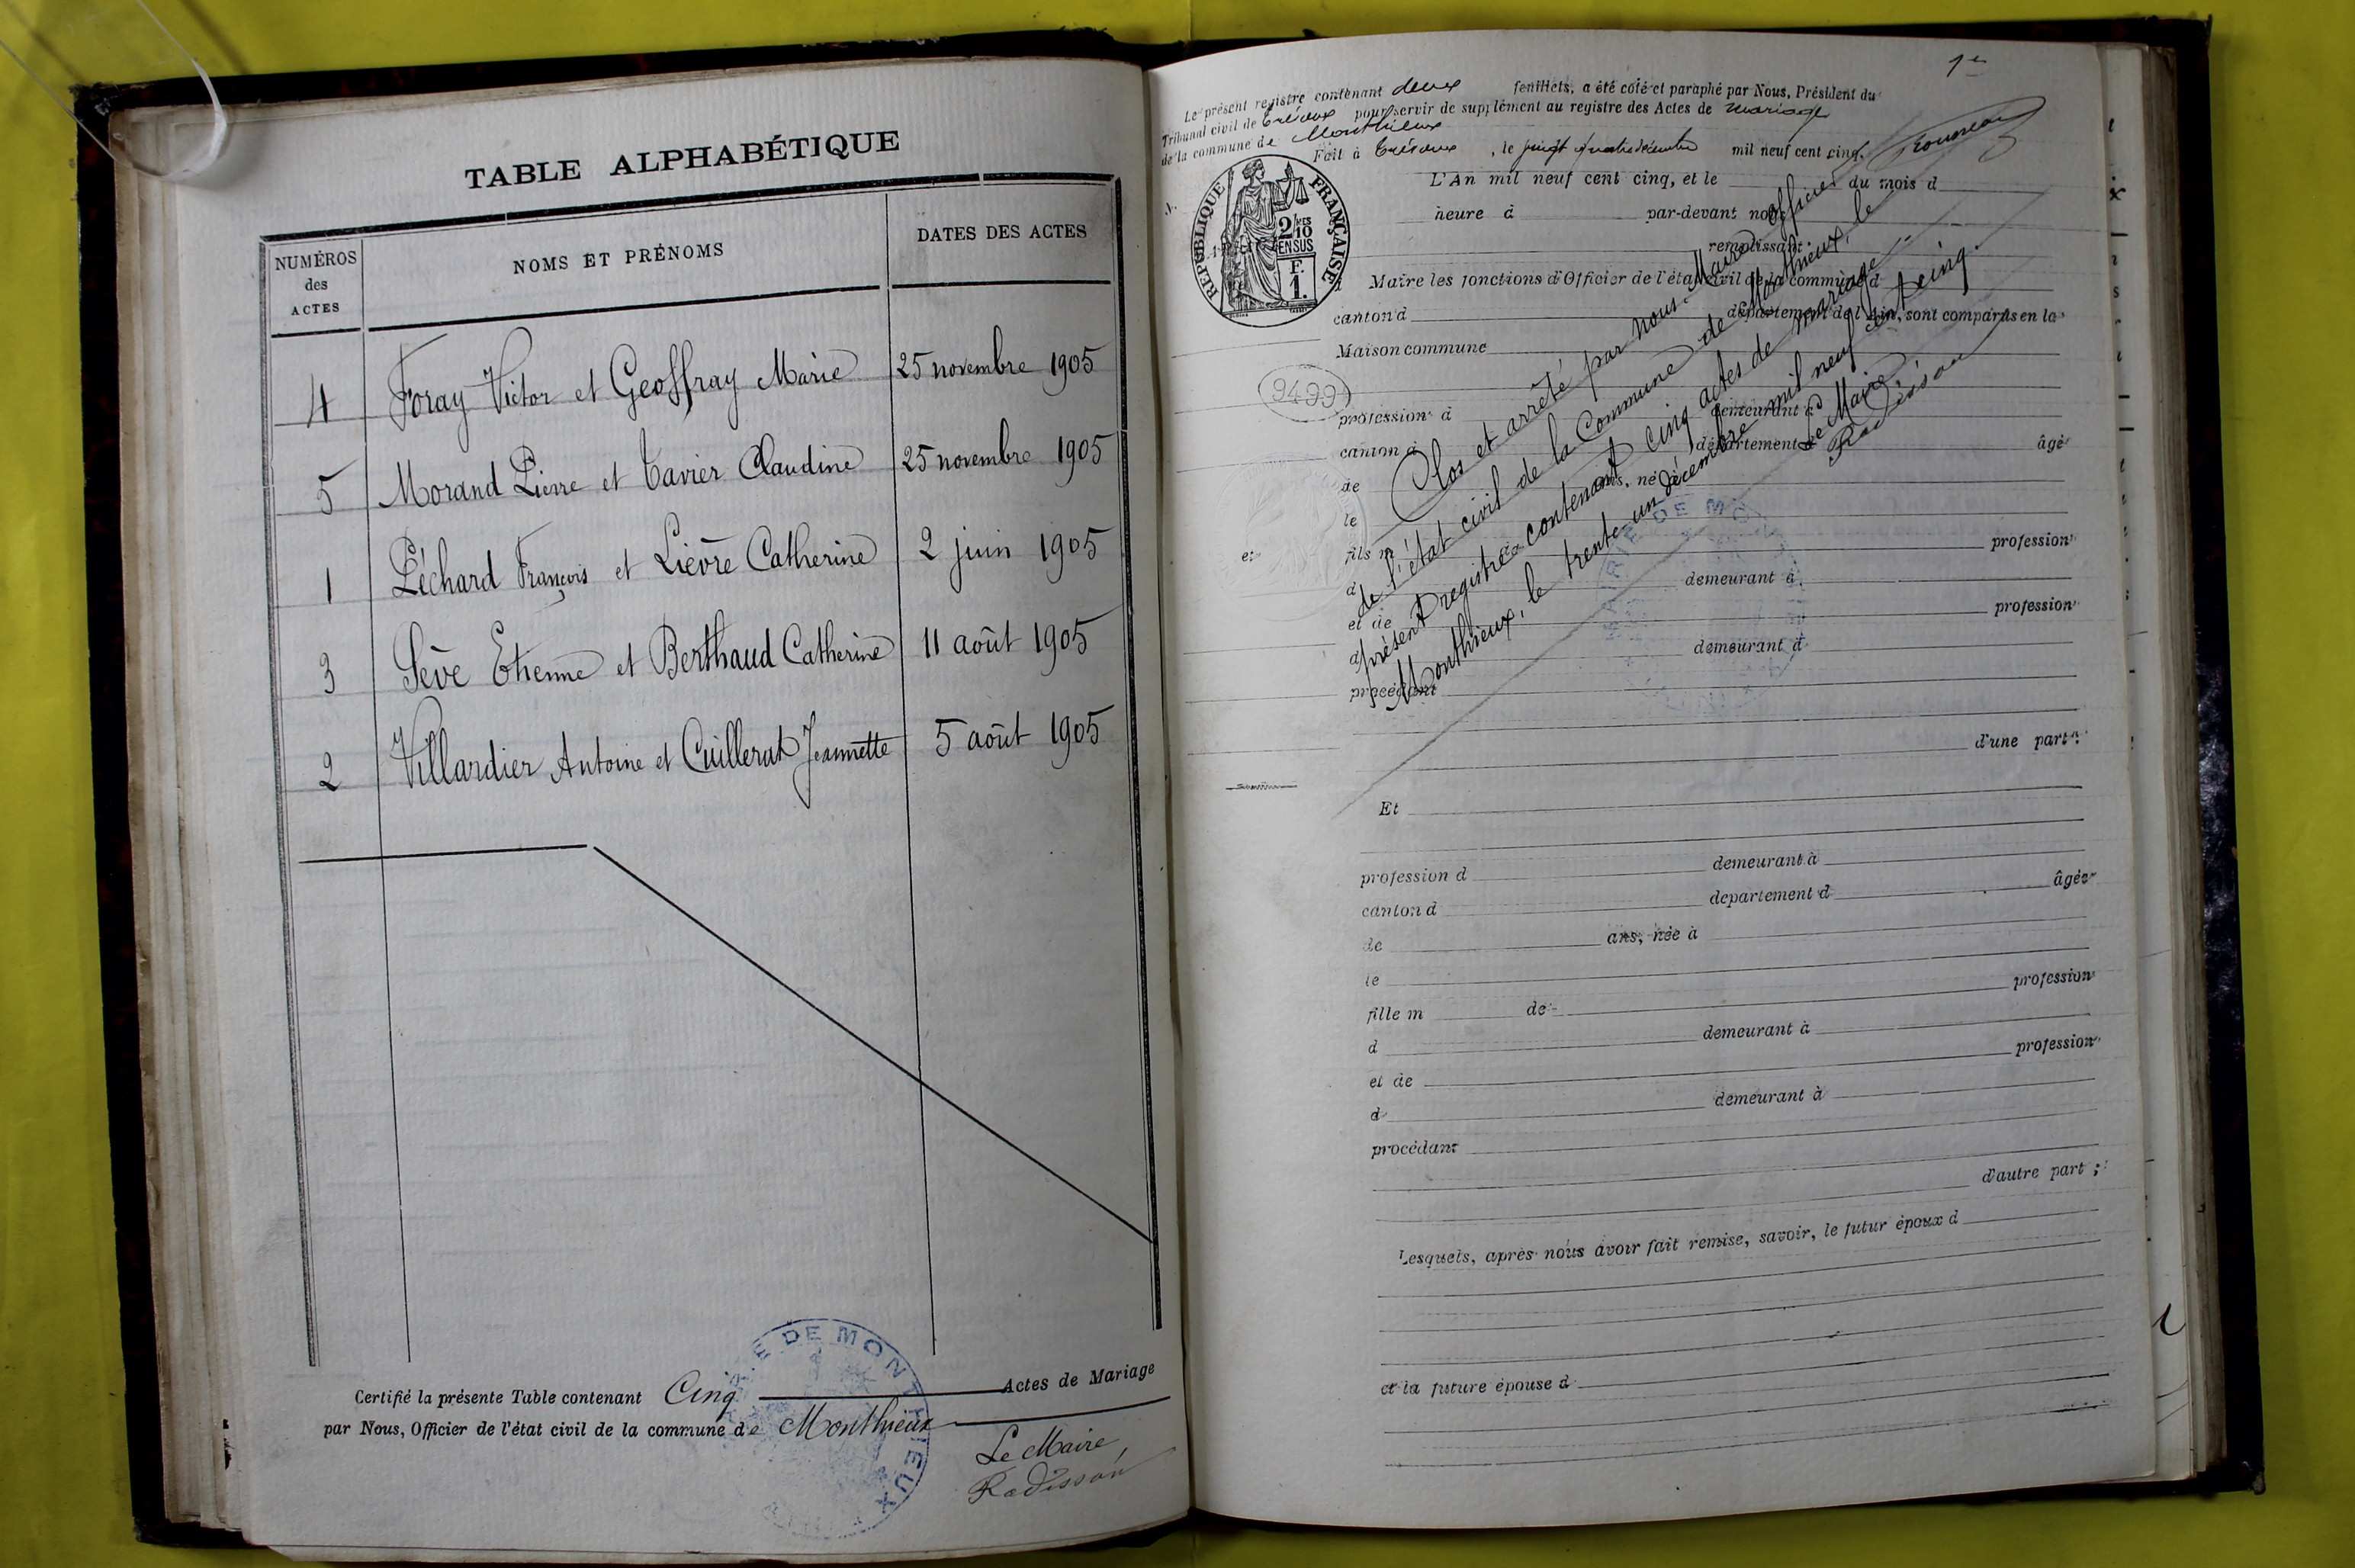 TABLE ALPHABÉTIQUE
NUMÉROS des ACTES
NOMS ET PRÉNOMS
DATES DES ACTES
4 Foray Victor et Geoffray Marie 25 novembre 1905
5 Morand Pierre et Tavier Claudine 25 novembre 1905
1 Péchard François et Lièvre Catherine 2 juin 1905
3 Sève Etienne et Berthaud Catherine 11 août 1905
2 Villardier Antoine et Cuillerat Jeannette 5 août 1905
Certifié la présente Table contenant Cinq Actes de Mariage
par Nous, Officier de l'état civil de la commune de Monthieux
Le Maire
Radisson
MAIRIE DE MONTHIEUX
1er
Le présent registre contenant deux feuillets, a été coté et paraphé par Nous, Président du
Tribunal civil de Trévoux pour servir de supplément au registre des Actes de mariage
de la commune de Monthieux
Fait à Trévoux, le vingt quatre décembre mil neuf cent cinq.
RÉPUBLIQUE FRANÇAISE
2/10 EN SUS
F. 1.
L'An mil neuf cent cinq, et le du mois d
heure à par-devant nous
remplissant
Maire les fonctions d'Officier de l'état civil de la commune d
canton d département de l'Ain, sont comparus en la
Maison commune
9499
profession d demeurant à
canton d département d âgé
de ans, né à
le
fils m de profession
d demeurant à
et de profession
d demeurant à
procédant
d'une part ;
Clos et arrêté par nous. Maire Officier
de l'état civil de la Commune de Monthieux, le
présent registre contenant cinq actes de mariage
Monthieux, le trente un décembre mil neuf cent cinq.
Le Maire
Radisson
Et
profession d demeurant à
canton d département d âgée
de ans, née à
le
fille m de profession
d demeurant à
et de profession
d demeurant à
procédant
d'autre part ;
Lesquels, après nous avoir fait remise, savoir, le futur époux d
et la future épouse d